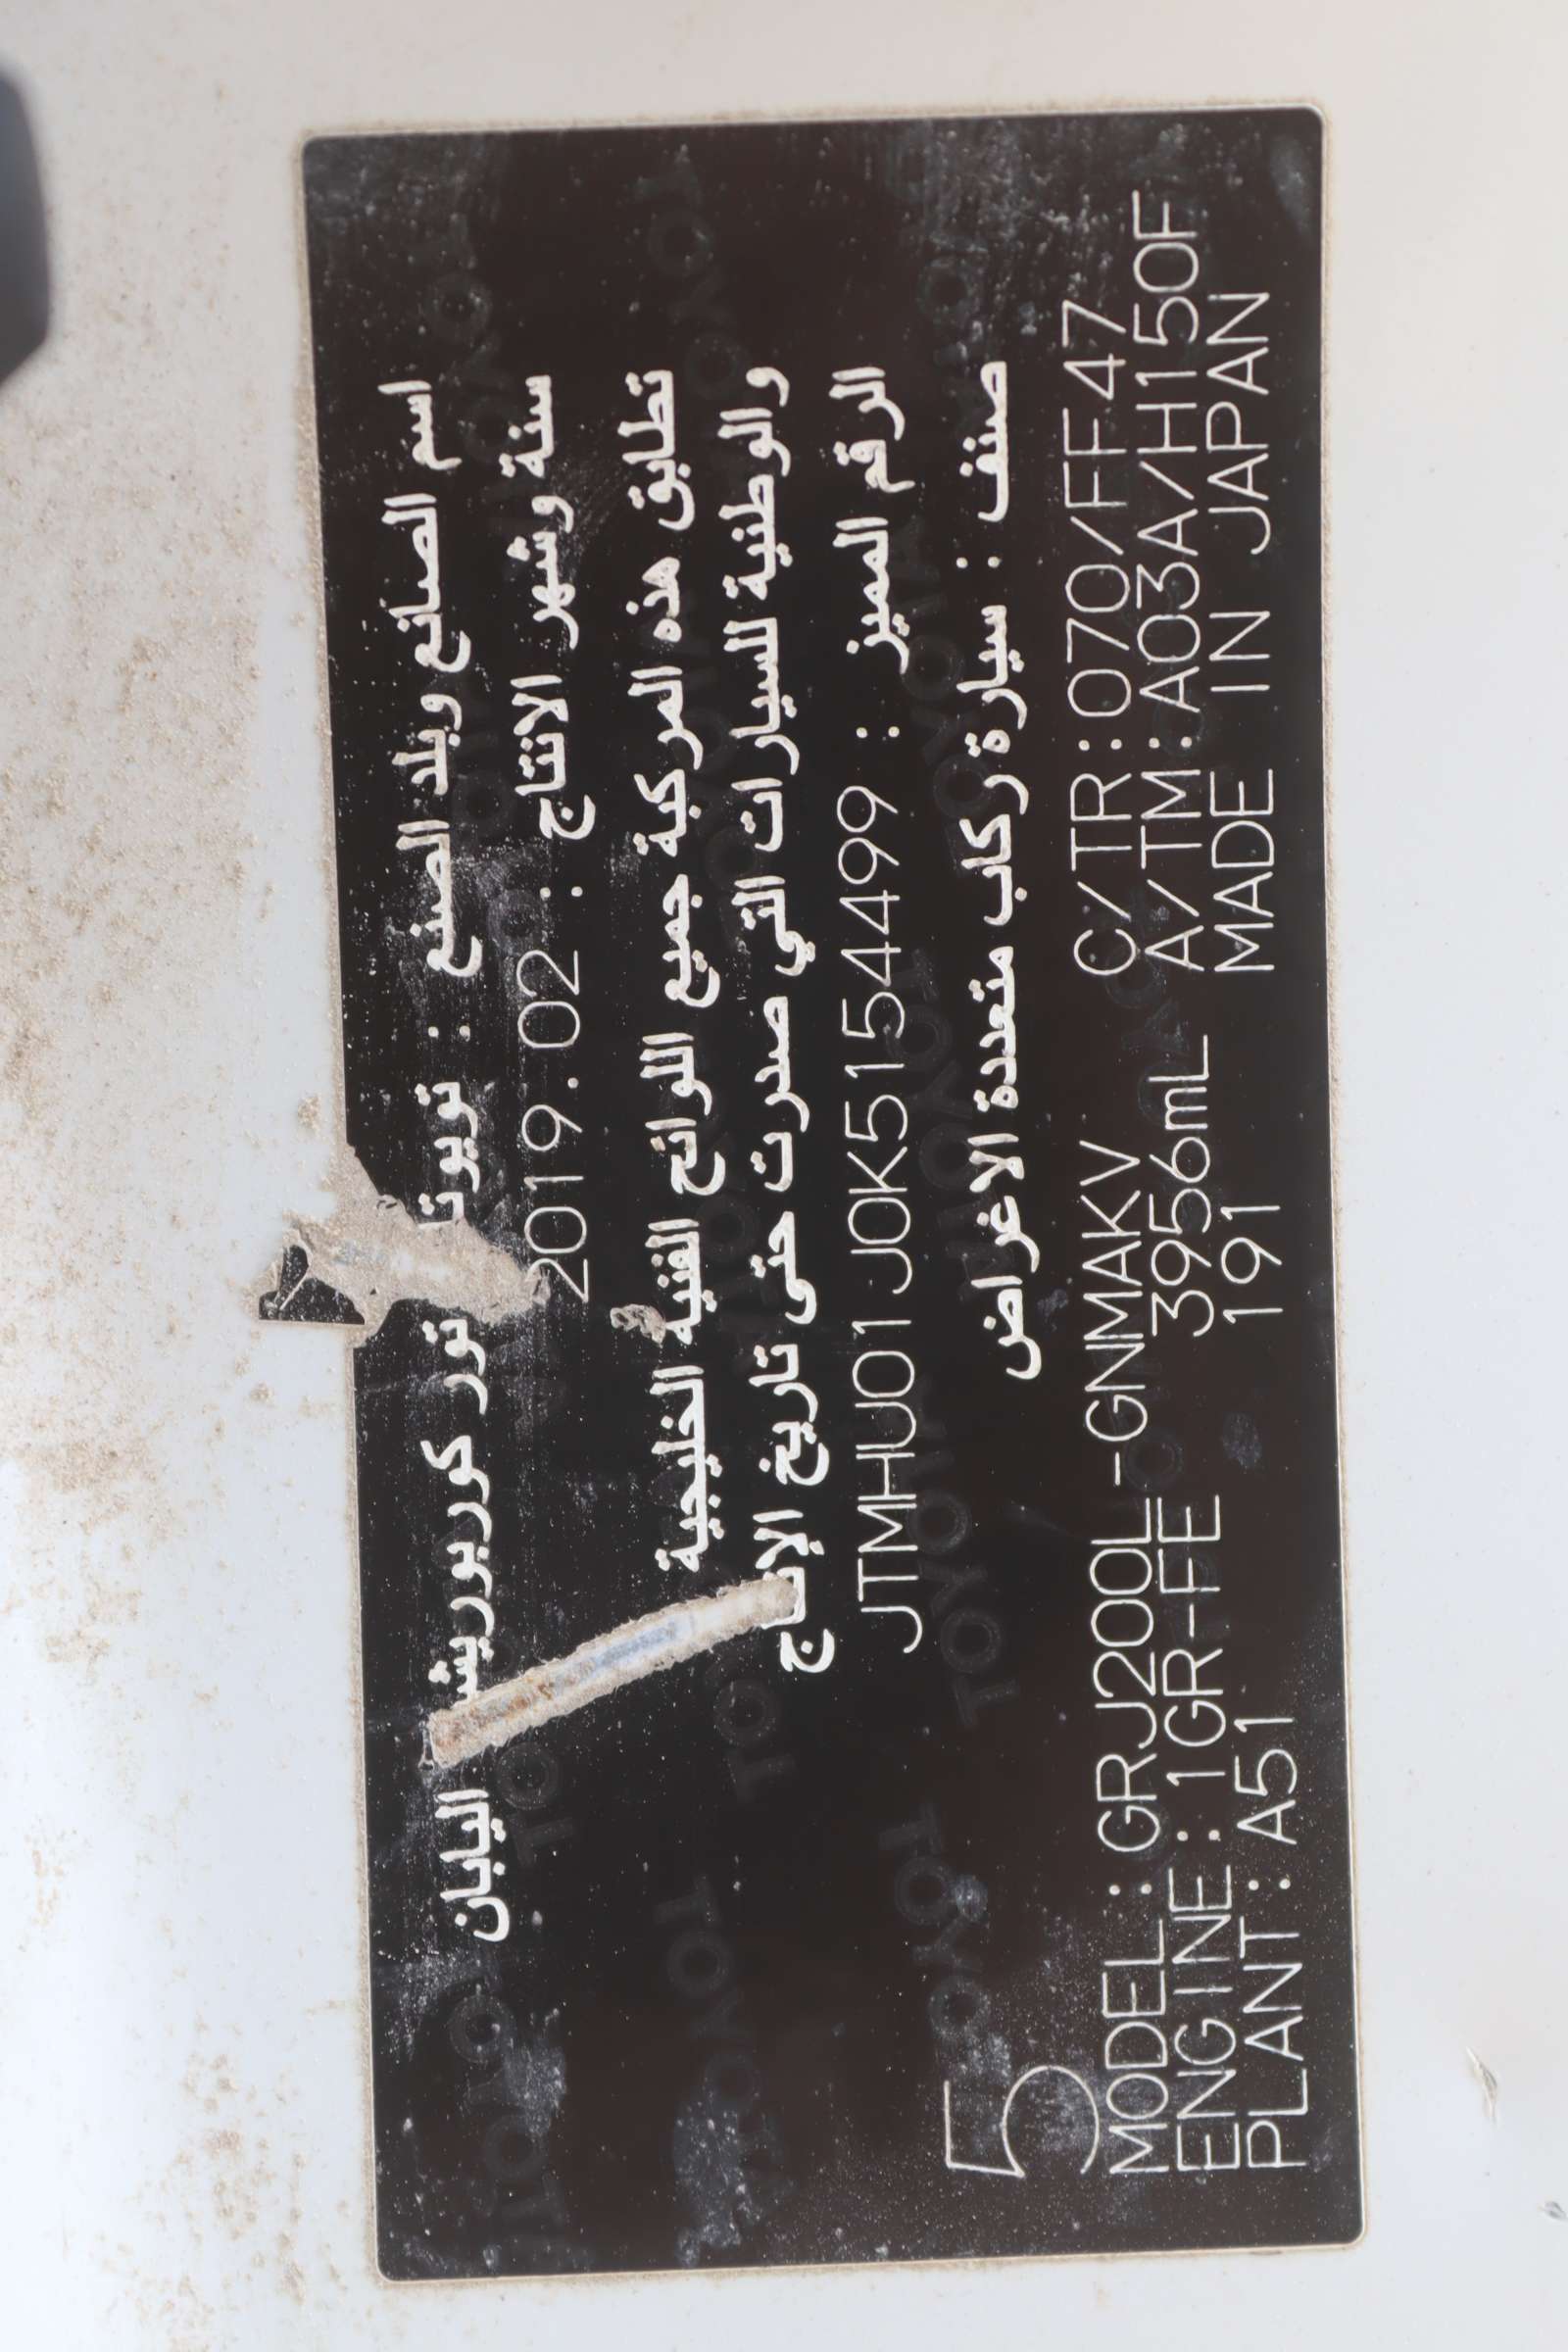 اسم الصانع وبلد الصنع : تويوتا تور كوربوريشن اليابان
سنة وشهر الانتاج : 2019.02
تطابق هذه المركبة جميع اللوائح الفنية الخليجية
والوطنية للسيارات التي صدرت حتى تاريخ الإنتاج
الرقم المميز : JTMHU01J0K5154499
صنف : سيارة ركاب متعددة الاغراض
5
MODEL:GRJ200L-GNMAKV C/TR:070/FF47
ENGINE:1GR-FE 3956mL A/TM:A03A/H150F
PLANT:A51 191 MADE IN JAPAN